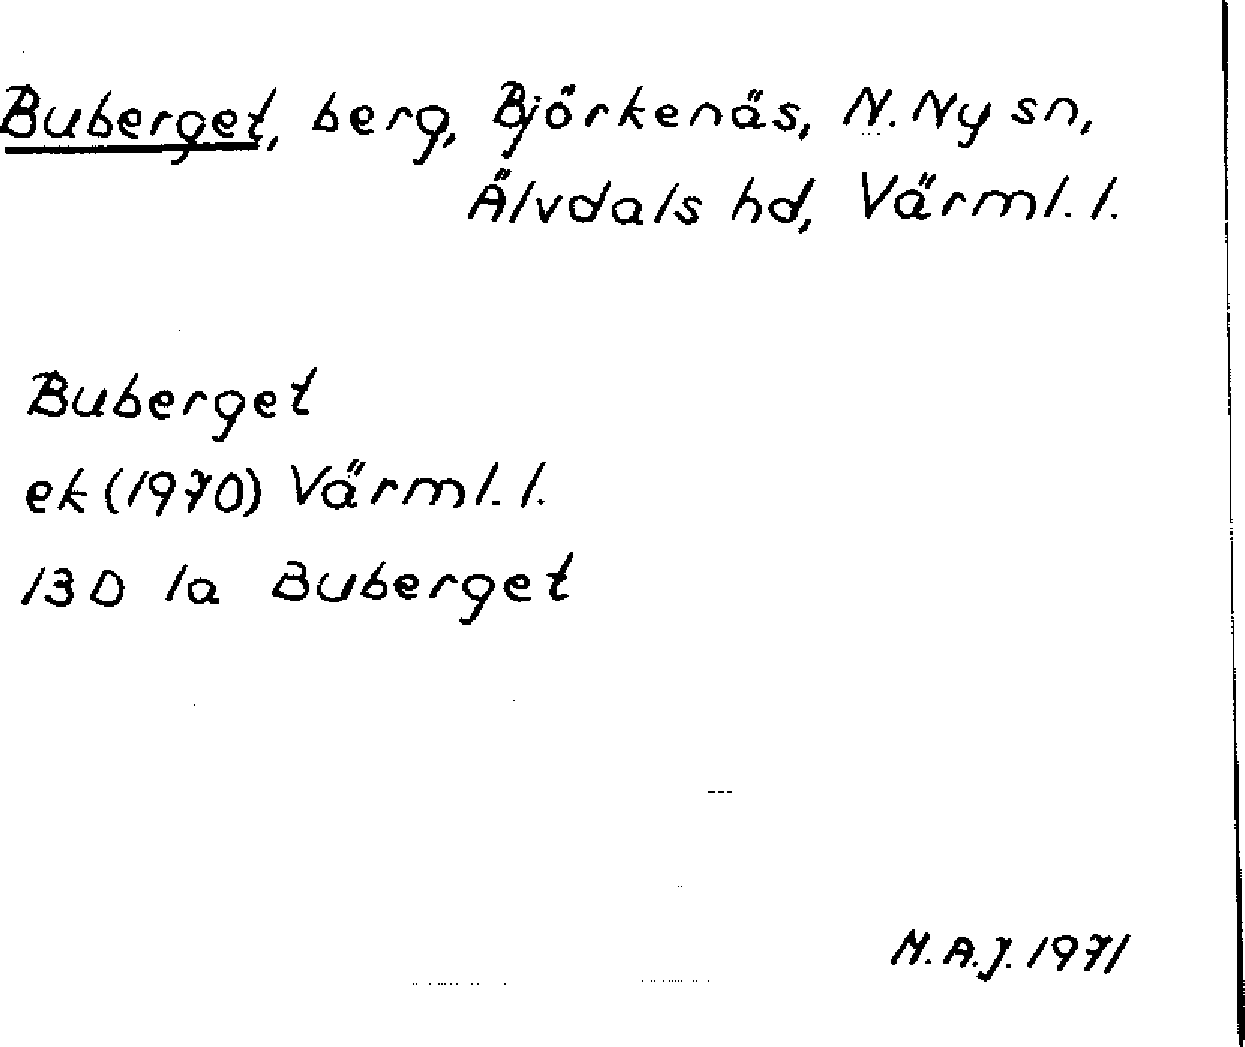 Buberget, berg, Björkenäs, N. Ny sn,
Älvdals hd, Värml. l.
Buberget
ek (1970) Värml. l.
13D 1a Buberget
M.A.J. 1971